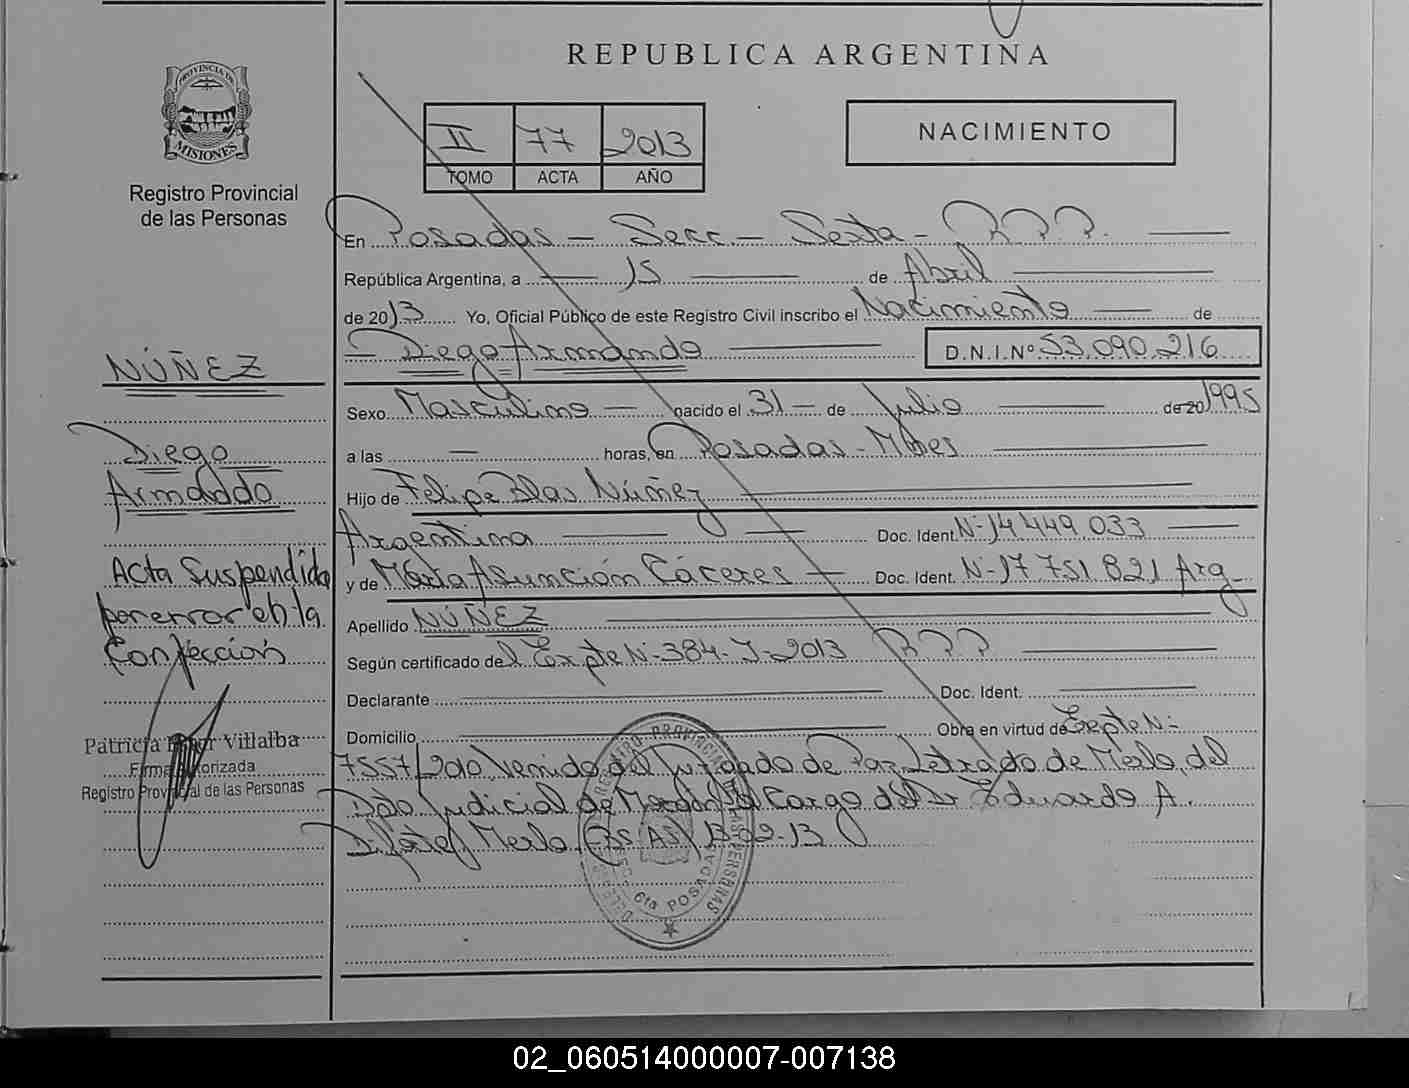 REPUBLICA ARGENTINA
PROVINCIA DE
MISIONES
Registro Provincial
de las Personas
II 77 2013
TOMO ACTA AÑO
NACIMIENTO
En Posadas - Secc - Sexta - R.P.P.
República Argentina, a 15 de Abril
de 2013 Yo, Oficial Público de este Registro Civil inscribo el Nacimiento de
Diego Armando D.N.I.Nº 53.090.216
Sexo Masculino nacido el 31 de Julio de 20 1995
a las - horas, en Posadas - Mnes
Hijo de Felipe Blas Núñez
Argentina Doc. Ident. N-14 449 033
y de María Asunción Cáceres - Doc. Ident. N-17 751 821 Arg
Apellido NÚÑEZ
Según certificado del Expte N-384-J-2013 R.P.P.
Declarante Doc. Ident.
Domicilio Obra en virtud de Expte N-
7557/2do Venido del Juzgado de Paz Letrado de Merlo, del
Dpto Judicial de Morón a Cargo del Dr Eduardo A.
Merlo (BS AS) 13-02-13
NÚÑEZ
Diego
Armando
Acta Suspendida
por error en la
Confección
Patricia Villalba
Firma Autorizada
Registro Provincial de las Personas
6ta POSADAS
02_060514000007-007138